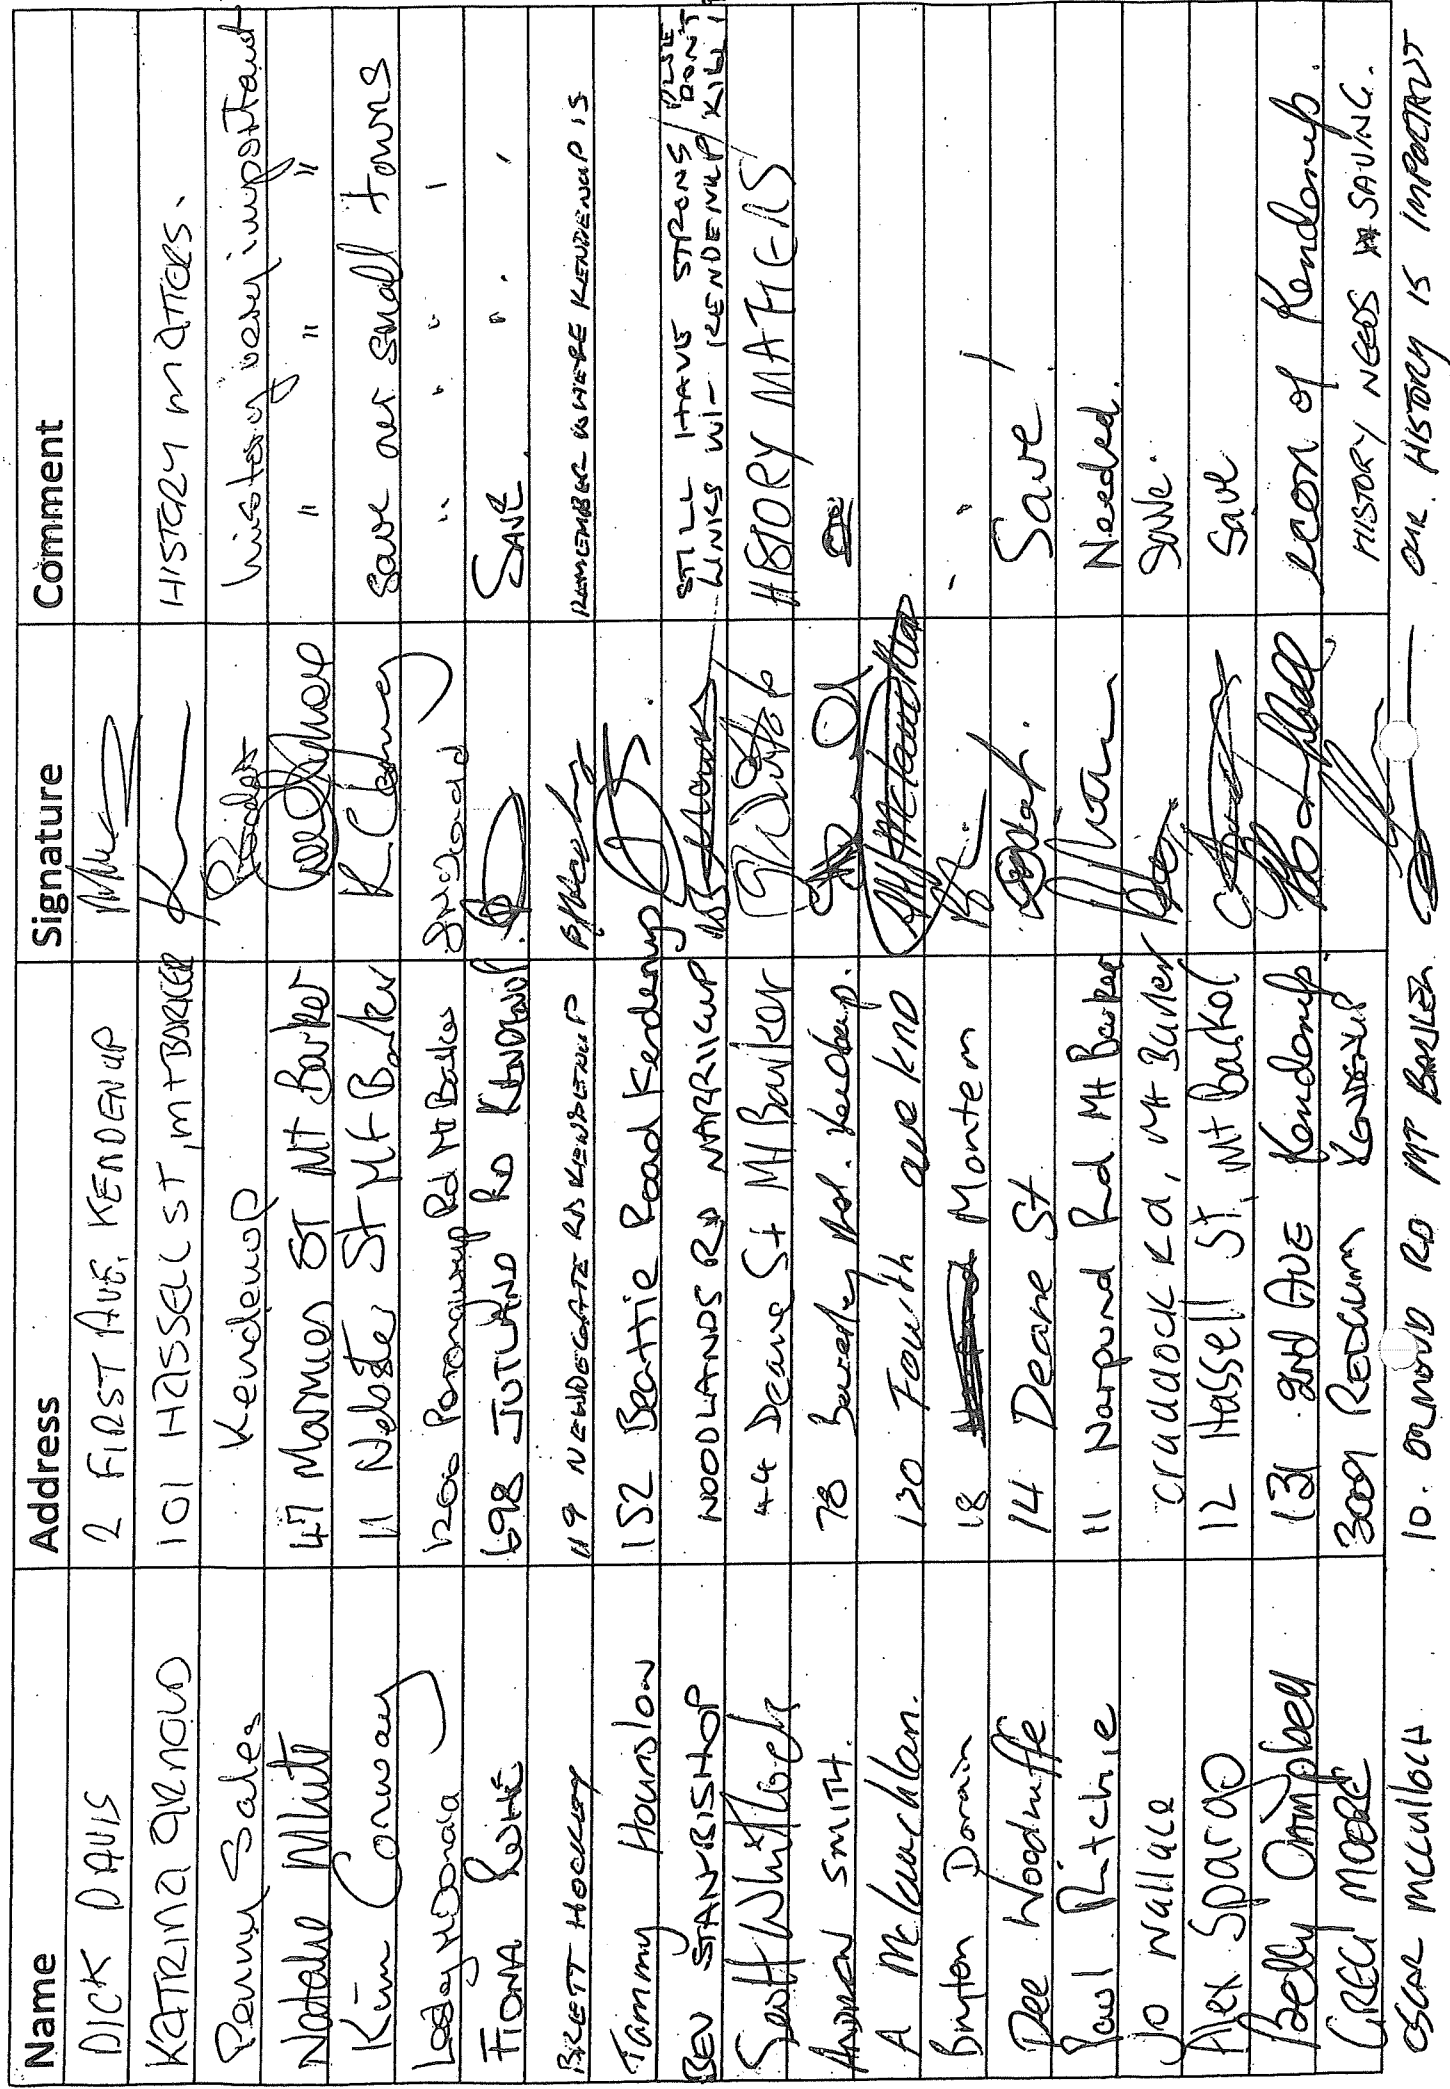 Name Address Signature Comment
DICK DAVIS 2 FIRST AVE. KENDENUP
KATRINA ARNOLD 101 HASSELL ST, MT BARKER HISTORY MATTERS.
Penny Sales Kendenup history very important
Natalie White 47 Marmes ST Mt Barker " " "
Kim Conway 11 St Mt Barker K Conway Save our small towns
Lesley McDonald 1206 Porongurup Rd Mt Barker " " " "
FIONA 698 JUTLAND RD KENDENUP SAVE " "
BRETT HOCKEY 119 NEWDEGATE RD KENDENUP REMEMBER WHERE KENDENUP IS
Tammy Hounslow 152 Beattie Road Kendenup
BEV STANBISHOP WOODLANDS RD NARRIKUP STILL HAVE STRONG
LINKS WI- KENDENUP / PLSE DON'T KILL IT
Scott Whitbeck 44 Deane St Mt Barker HSTORY MATTERS
Andrew SMITH. 78 Rd. Kendenup.
A McLauchlan. 130 Fourth ave KND
Brinton Dorain 18 Montem " "
Dee Woodruffe 14 Deane St Save!
Paul Ritchie 11 Narpund Rd Mt Barker Needed.
Jo Wallace Craddock Rd, Mt Barker Save.
Alex Spargo 12 Hassell St, Mt Barker Save
Belly Campbell 131 2nd AVE Kendenup econ of Kendenup.
GREG MOORE 3009 REDGUM KENDENUP HISTORY NEEDS SAVING.
OSCAR MCCULLOCH 10. ORMOND RD MT BARKER OUR HISTORY IS IMPORTANT